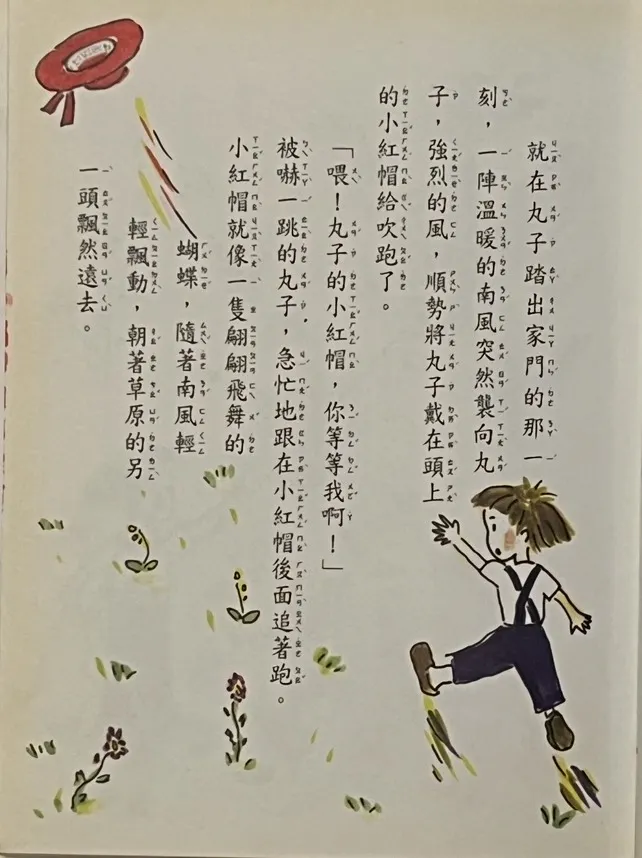 就在丸子踏出家門的那一
刻，一陣溫暖的南風突然襲向丸
子，強烈的風，順勢將丸子戴在頭上
的小紅帽給吹跑了。
「喂！丸子的小紅帽，你等等我啊！」
被嚇一跳的丸子，急忙地跟在小紅帽後面追著跑。
小紅帽就像一隻翩翩飛舞的
蝴蝶，隨著南風輕
輕飄動，朝著草原的另
一頭飄然遠去。